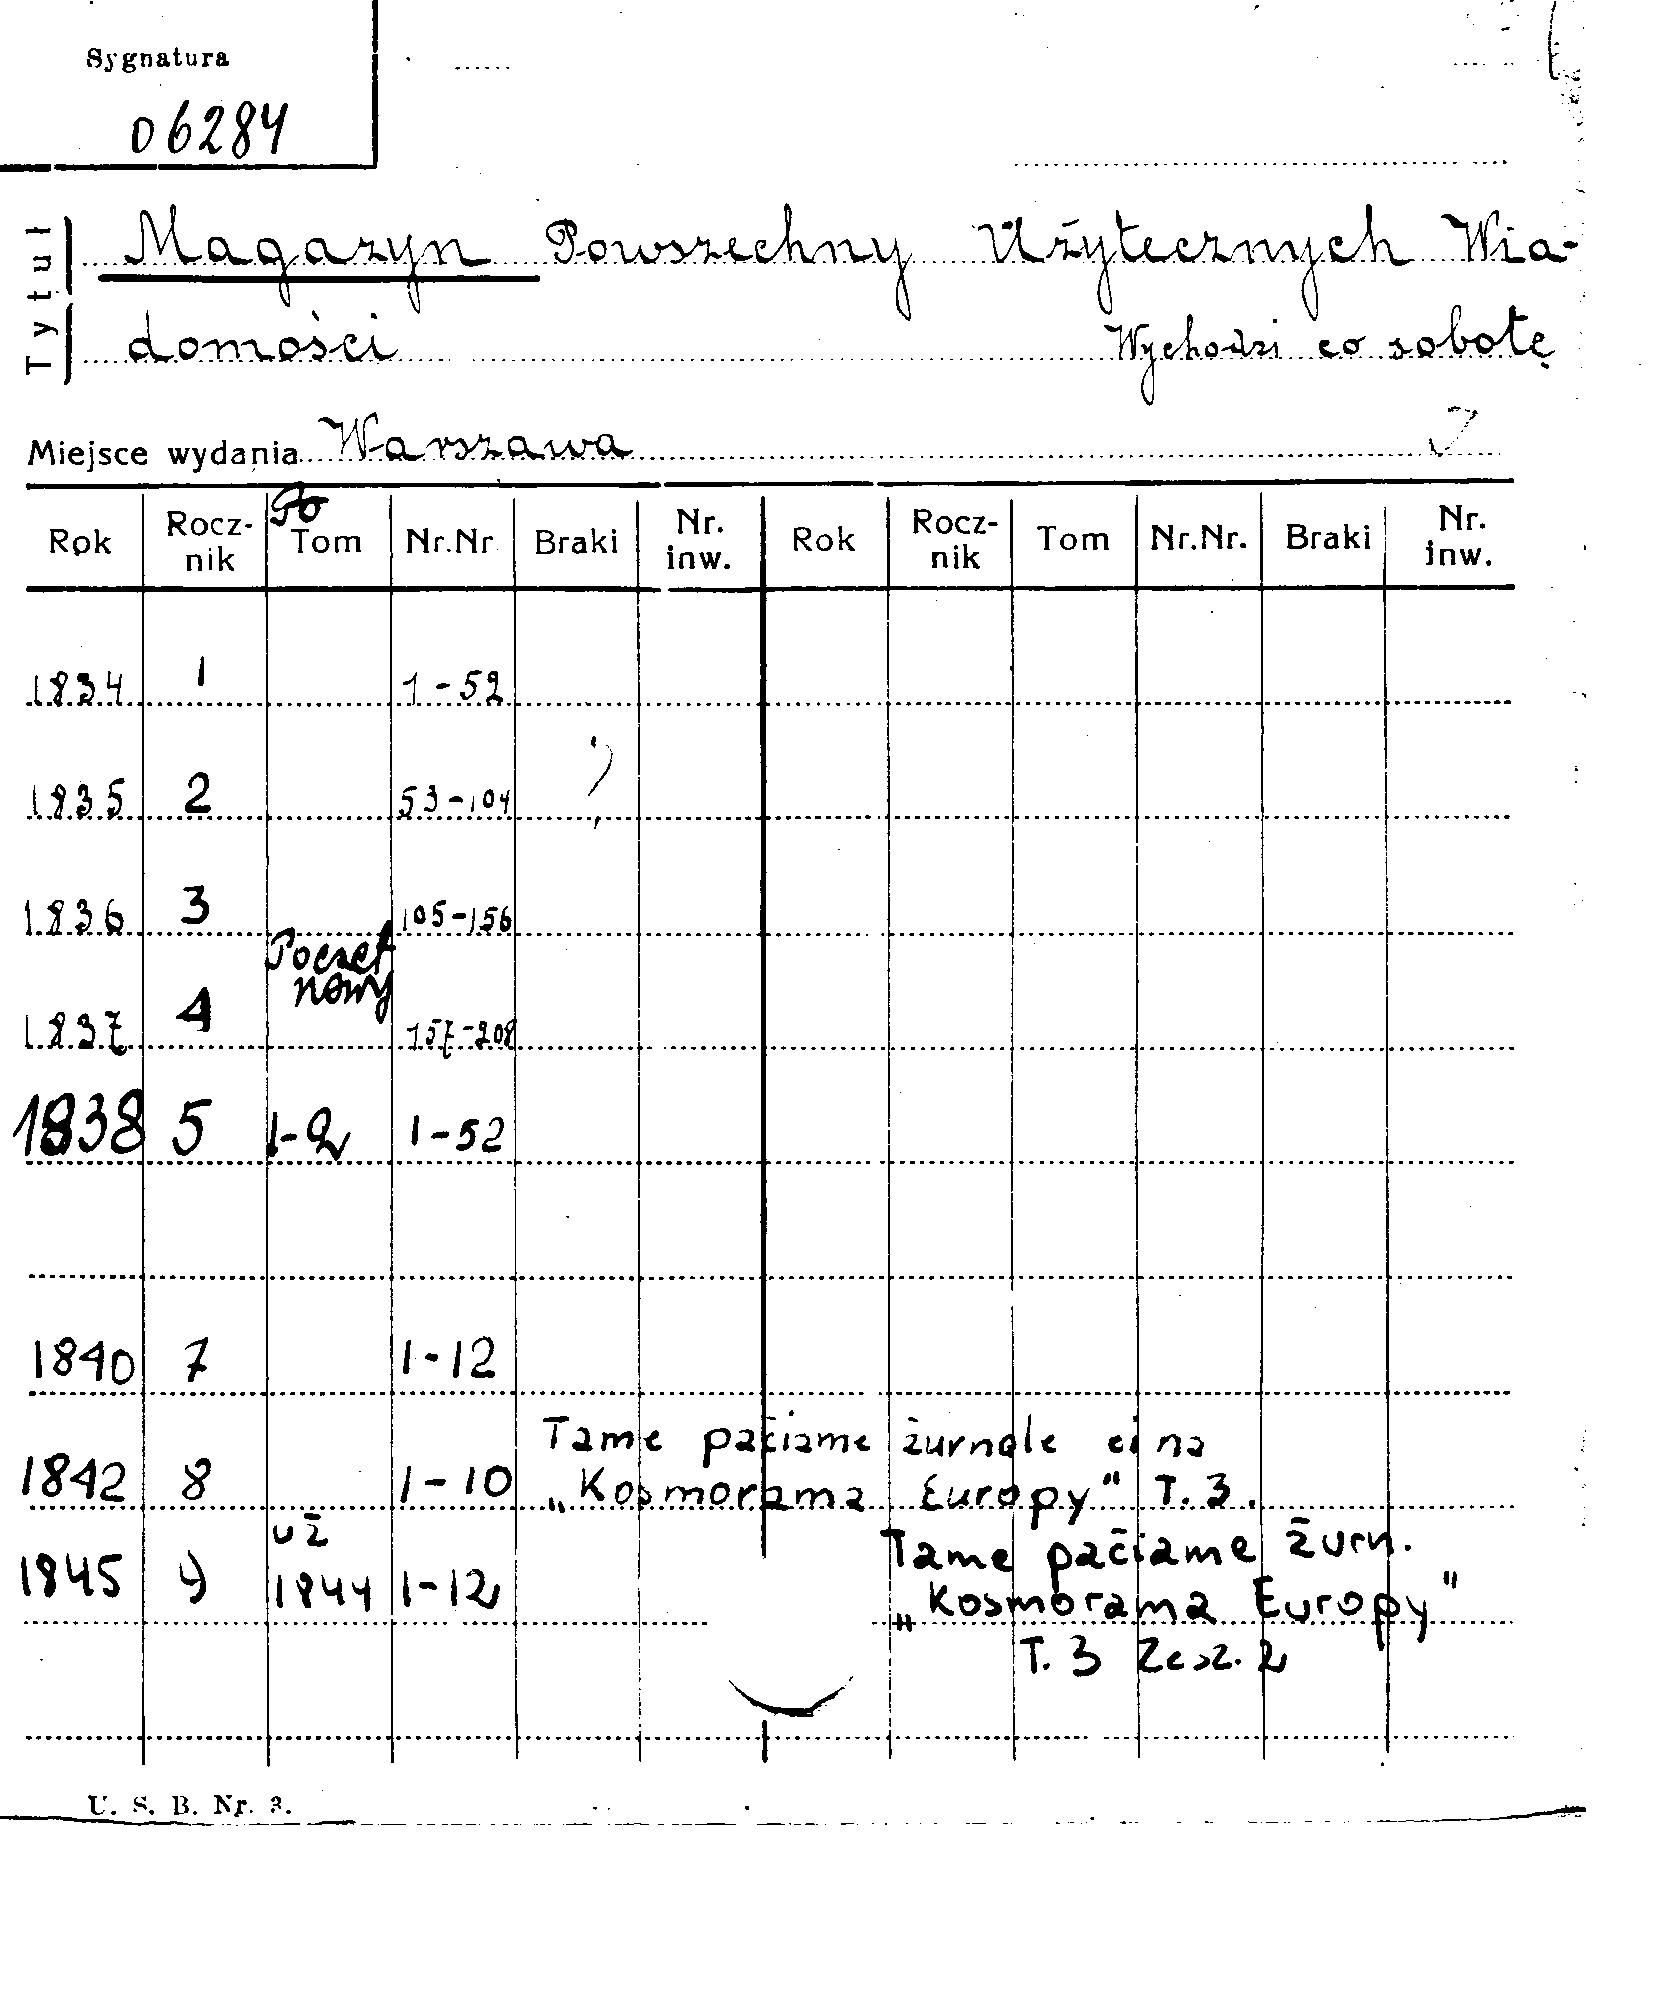 Sygnatura
06284
Tytuł
Magazyn Powszechny Użytecznych Wia-
domości Wychodzi co sobotę
Miejsce wydania Warszawa
Rok Rocz-nik Tom Nr.Nr Braki Nr. inw. Rok Rocz-nik Tom Nr.Nr. Braki Nr. inw.
1834 1 1-52
1835 2 53-104
1836 3 105-156
Poczet
nowy
1837 4 157-208
1838 5 1-2 1-52
1840 7 1-12
Tame pačiame žurnale eina
1842 8 1-10 „Kosmorama Europy" T. 3.
už Tame pačiame žurn.
1845 9 1844 1-12 „Kosmorama Europy"
T. 3 Zesz. 2
U. S. B. Nr. 3.